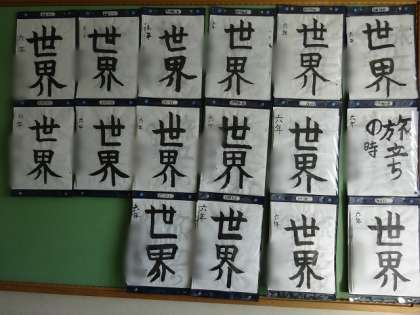 世界
六年
世界
六年
世界
六年
世界
六年
世界
六年
世界
六年
世界
六年
世界
六年
世界
六年
世界
六年
世界
六年
旅立ち
の時
六年
世界
六年
世界
六年
世界
六年
世界
六年